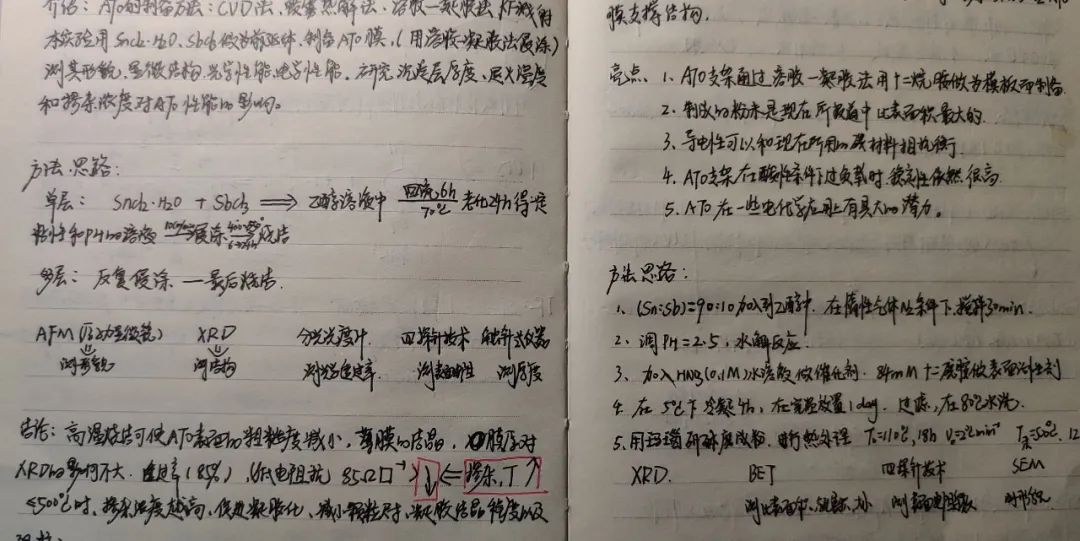 介绍：ATO的制备方法：CVD法、喷雾热解法、溶胶—凝胶法、RF溅射
本实验用SnCl₂·H₂O、SbCl₃做为前驱体、制备ATO膜，(用溶胶—凝胶法浸涂)
测其形貌、显微结构、光学性能、电学性能。研究沉淀层厚度、退火温度
和掺杂浓度对ATO性能的影响。
方法思路：
单层： SnCl₂·H₂O + SbCl₃ ⟹ 乙醇溶液中 回流6h 70℃ 老化24h得一定
粘性和PH的溶液 浸涂 烧结
多层：反复浸涂 — 最后烧结.
AFM(原子力显微镜) XRD 分光光度计. 四探针技术 触针式仪器
测形貌 测结构 测光透过率. 测表面电阻 测厚度
结论：高温烧结可使ATO表面的粗糙度减小，薄膜的结晶，膜厚对
XRD的影响不大. 透过率(85%)，低电阻抗 85Ω□⁻¹ ↓ ⇐ 掺杂、T↑
≤500℃时，掺杂浓度越高，促进凝胶化、减小颗粒尺寸、凝胶结晶程度以及
膜支撑结构.
亮点、1、ATO支架通过溶胶—凝胶法用十二烷胺做为模板而制备.
2、制成的粉末是现在所报道中比表面积最大的.
3、导电性可以和现在所用的碳材料相抗衡.
4、ATO支架在酸性条件下过负载时.稳定性依然很高.
5、ATO在一些电化学应用上有具大的潜力.
方法思路：
1、(Sn:Sb)=90:10加入到乙醇中. 在惰性气体N₂条件下.搅拌30min.
2、调PH=2.5，水解反应.
3、加入HNO₃(0.1M)水溶液做催化剂. 84mM十二胺做表面活性剂
4、在5℃下冷凝4h，在室温放置1day. 过滤，在80℃水洗.
5、用玛瑙研钵磨成粉，进行热处理 T₁=110℃，18h V₂=2℃min⁻¹ 12
XRD. BET 四探针技术 SEM
测比表面积、 测表面电阻 测形貌